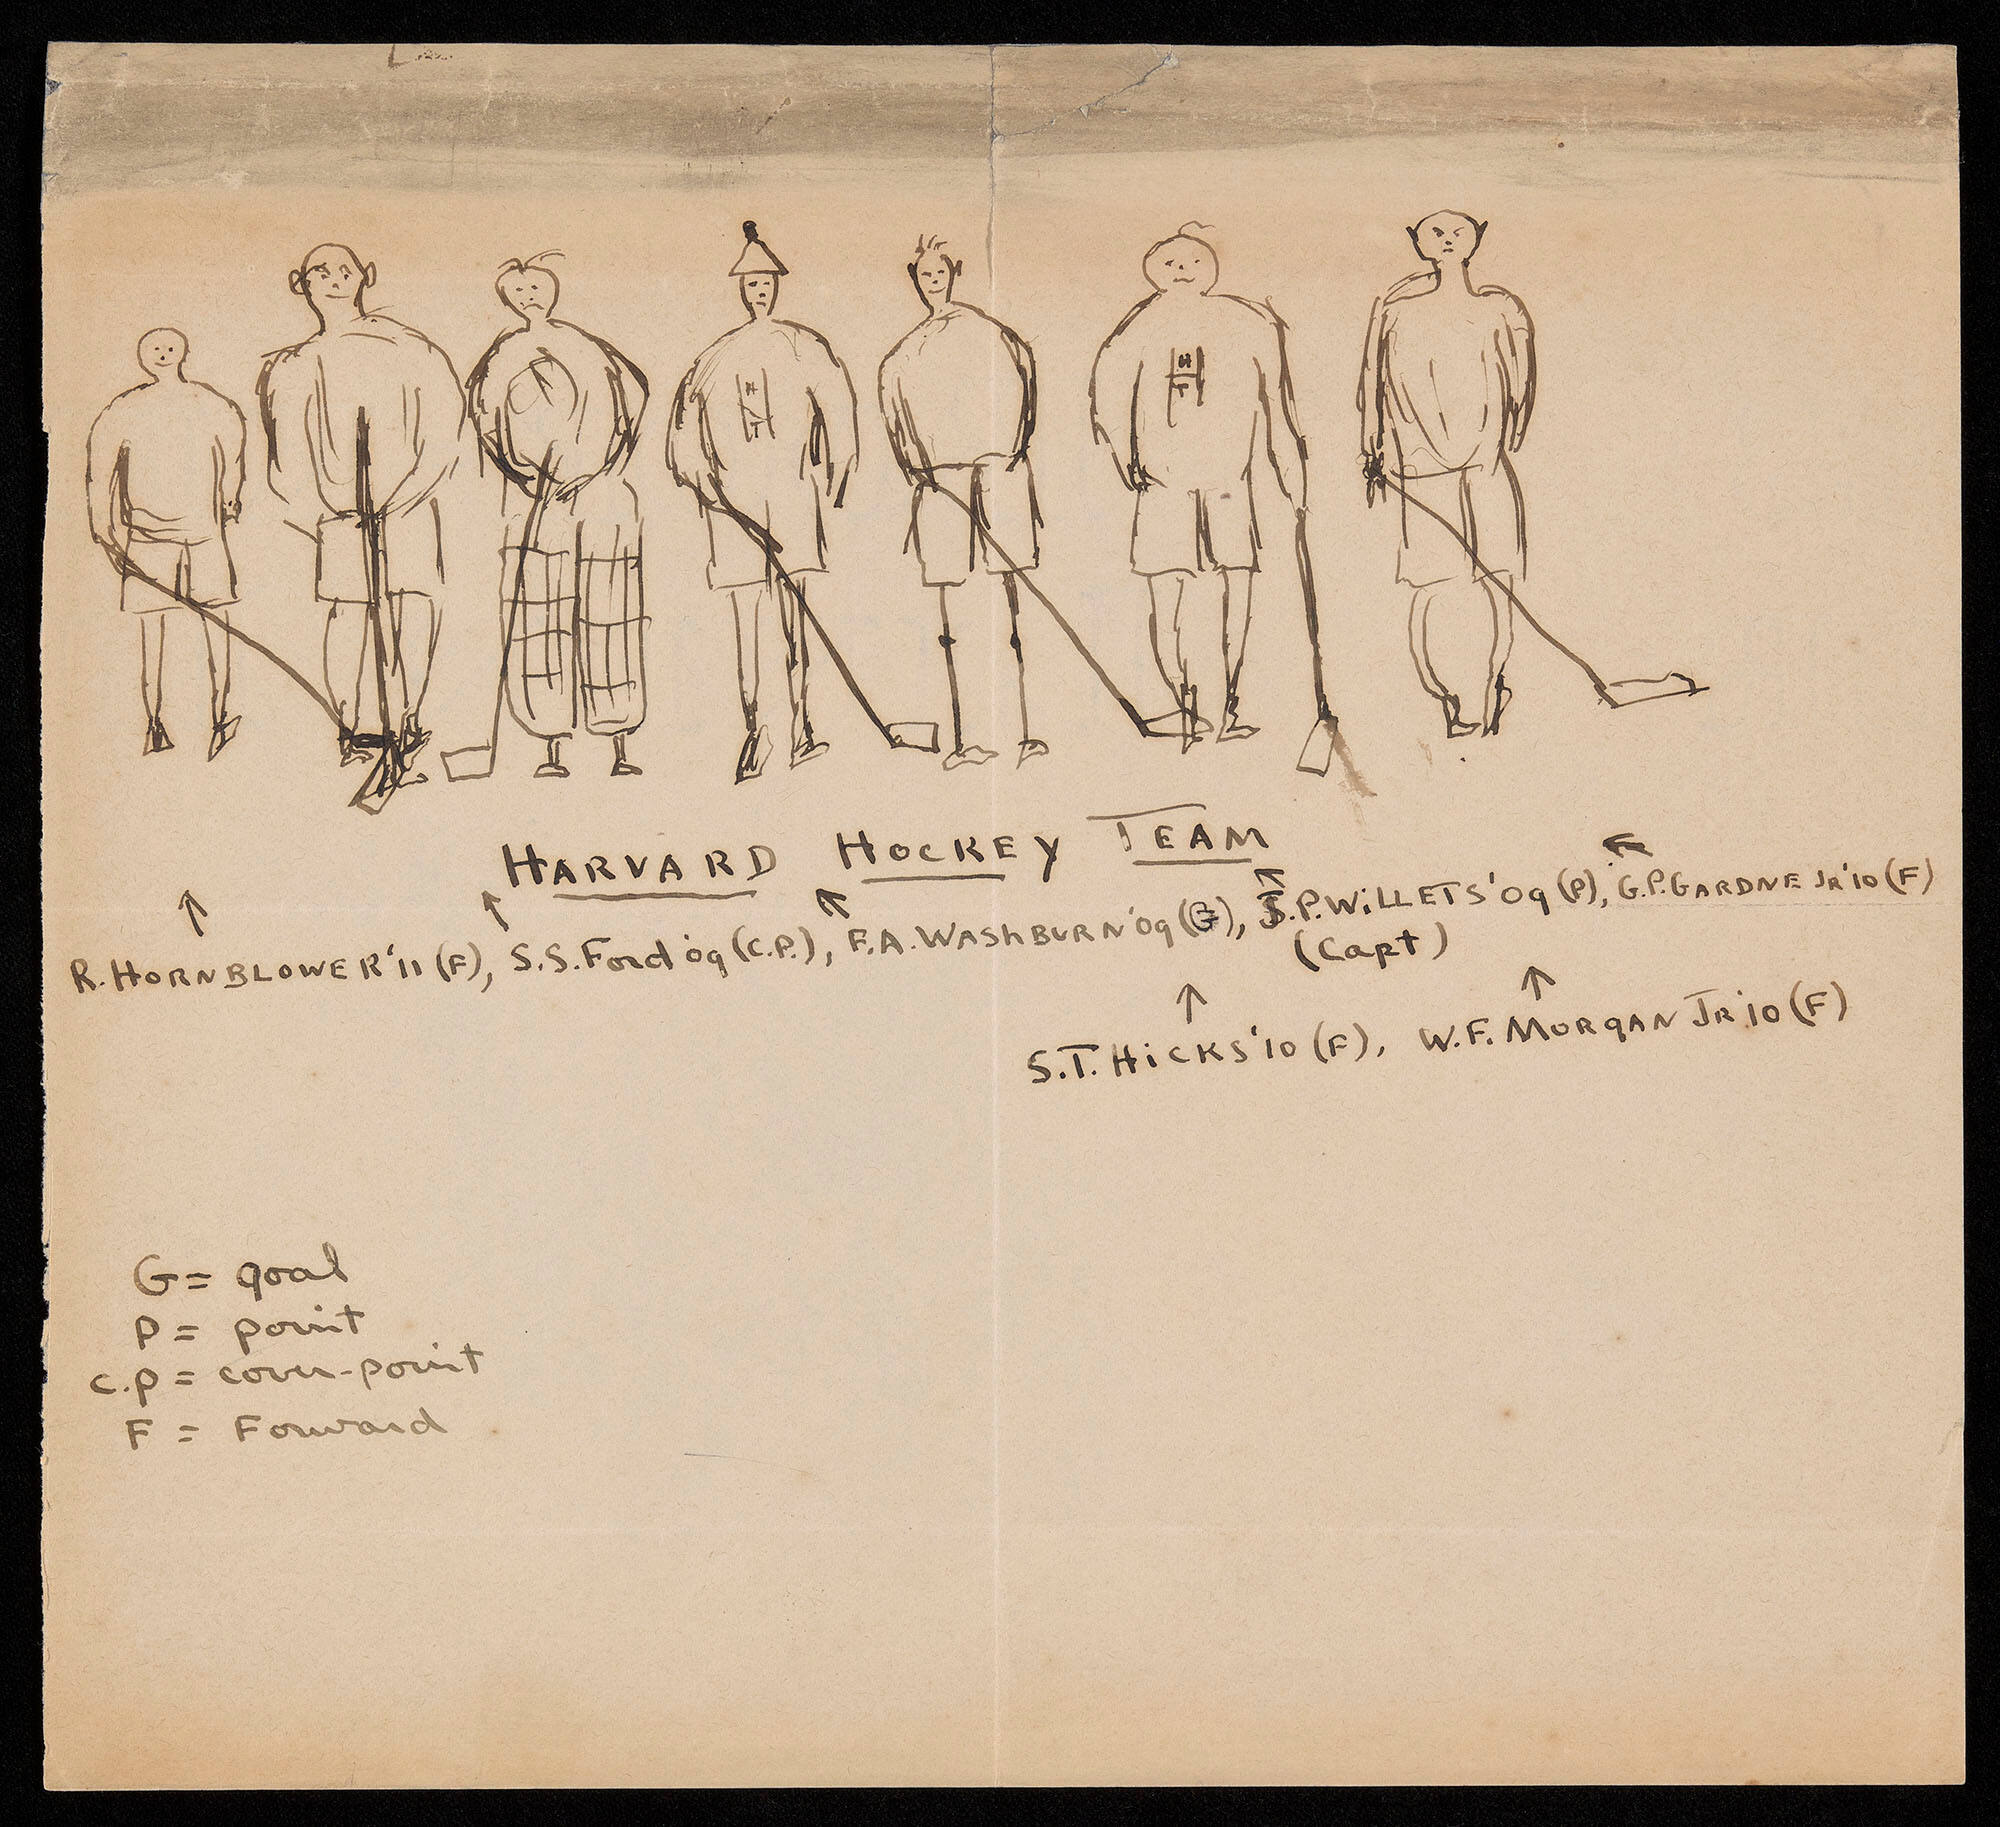 HARVARD HOCKEY TEAM
R. HORNBLOWER '11 (F), S.S. Ford '09 (C.P.), F.A. WAShBURN '09 (G), S.P. WiLLETS '09 (P), G.P. GARDNE JR '10 (F)
(Capt)
S.T. HiCKS '10 (F), W.F. MORGAN JR '10 (F)
G = goal
P = point
C.P = cover-point
F = Forward